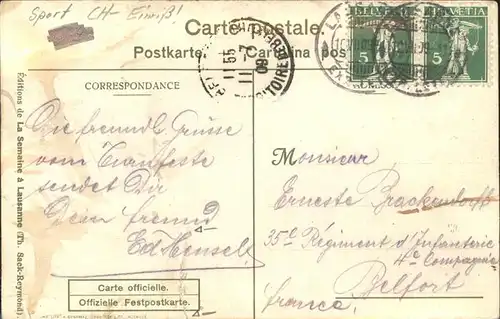 Sport CH- Einriß!
Carte postale.
Postkarte. Cartolina pos
HELVETIA HELVETIA
5 5
11 VII 09
CORRESPONDANCE
Die freundl. Grüsse
vom Turnfeste
sendet Dir
Dein freund
Ed Hensel
Monsieur
Erneste Brackendorff
35e Régiment d'Infanterie
4e Compagnie
Belfort
france.
Carte officielle.
Offizielle Festpostkarte.
Éditions de La Semaine à Lausanne (Th. Sack-Reymond).